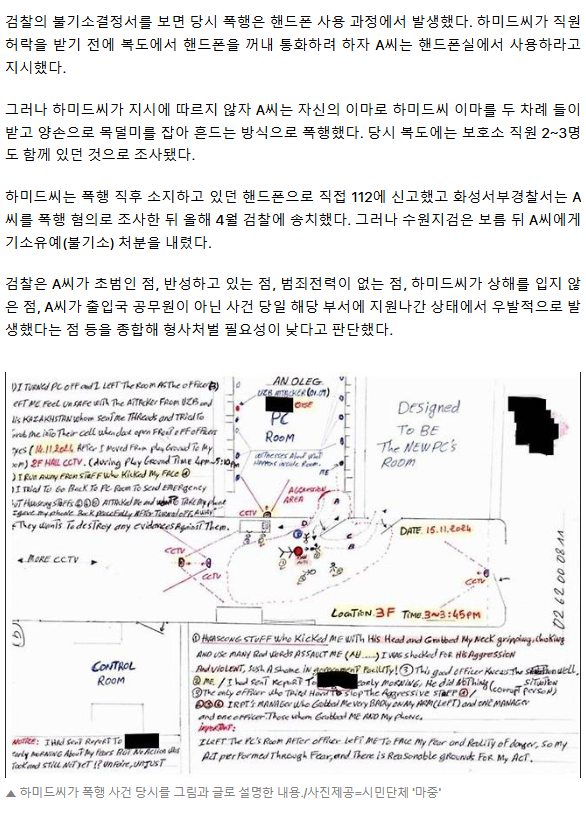 검찰의 불기소결정서를 보면 당시 폭행은 핸드폰 사용 과정에서 발생했다. 하미드씨가 직원
허락을 받기 전에 복도에서 핸드폰을 꺼내 통화하려 하자 A씨는 핸드폰실에서 사용하라고
지시했다.
그러나 하미드씨가 지시에 따르지 않자 A씨는 자신의 이마로 하미드씨 이마를 두 차례 들이
받고 양손으로 목덜미를 잡아 흔드는 방식으로 폭행했다. 당시 복도에는 보호소 직원 2~3명
도 함께 있던 것으로 조사됐다.
하미드씨는 폭행 직후 소지하고 있던 핸드폰으로 직접 112에 신고했고 화성서부경찰서는 A
씨를 폭행 혐의로 조사한 뒤 올해 4월 검찰에 송치했다. 그러나 수원지검은 보름 뒤 A씨에게
기소유예(불기소) 처분을 내렸다.
검찰은 A씨가 초범인 점, 반성하고 있는 점, 범죄전력이 없는 점, 하미드씨가 상해를 입지 않
은 점, A씨가 출입국 공무원이 아닌 사건 당일 해당 부서에 지원나간 상태에서 우발적으로 발
생했다는 점 등을 종합해 형사처벌 필요성이 낮다고 판단했다.
I TURNED PC OFF and I LEFT The Room AS The officer
LEFT ME Feel UNSAFE with The ATTACKER From UZB and
KAZAKHSTAN whom sent Me Threads and TRied To
me INTO Their cell when door open FRONT OF OFFICERS
eyes (14.11.2024 AFTER I Moved From Play GROUND To My
Room) 2F HALL CCTV. (during Play GROUND Time 4pm~5:10pm
I RUN AWAY From STAFF Who Kicked My FACE
I TRied To Go BACK To PC Room To Send EMERGENCY
ATTACKED Me and TAKE My phone
my phone BACK peacefully AFTER Turned off
They wants To desTRoy any evidences Against Them.
MORE CCTV
CCTV
CCTV
CCTV
CCTV
AN.OLEG.
UZB ATTACKER (01.09)
PC
Room
WITNESSES About what
happens inside Room.
ME
AGGRESSION
AREA
A
B
C
D
Designed
To BE
The NEW PC'S
ROOM
DATE 15.11.2024
Location 3F Time 3~3:45PM
02 62 00 08 11
CONTROL
ROOM
NOTICE: I HAD SENT REPORT To
early MORNING About My FEARS But No Action Was
Took and STILL NOT yet!? UNFAIRE, UNJUST
① HWASEONG STUFF who Kicked ME with His Head and Grabbed My Neck gripping, choking
AND USE MANY BAD words ASSAULT ME I was shocked FOR His AGGRESSION
And VIOLENT, SUCH A Shame in government Facility! ③ This good officer Knows The situation well,
② ME / I had SENT REPORT To early MORNING, He did NOTHING (corrupt person)
The only officer who TRied Hard To STop The AGGressive STAFF
MANAGER who Grabbed Me very BADly on My ARM (LEFT) and one MANAGER
and one officer Those whom GRABBED ME AND My phone.
important:
I LEFT The PC's Room AFTER officer LEFT ME To FACE My Fear and Reality of danger, so my
Act performed Through Fear, and There is Reasonable GROUNDS FOR My ACT.
▲ 하미드씨가 폭행 사건 당시를 그림과 글로 설명한 내용./사진제공=시민단체 '마중'